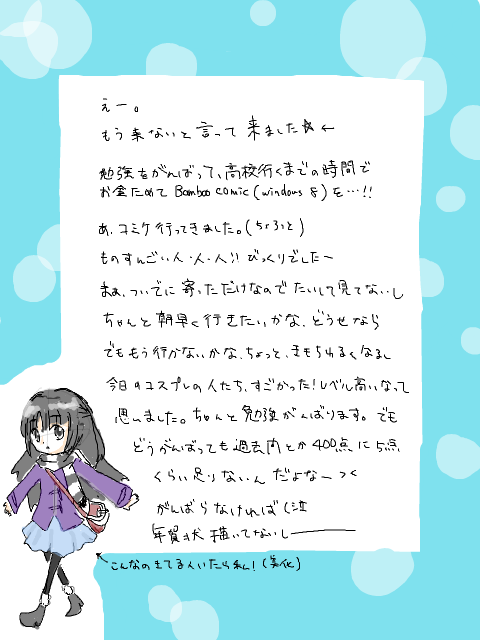 えー。
もう来ないと言って来ました☆←
勉強をがんばって、高校行くまでの時間で
お金ためて Bamboo comic (windows 8) を…!!
あ、コミケ行ってきました。(ちょろっと)
ものすんごい人・人・人!! びっくりでしたー
まぁ、ついでに寄っただけなのでたいして見てないし
ちゃんと朝早く行きたいかな、どうせなら
でももう行かないかな、ちょっと、きもちわるくなるし
今日のコスプレの人たち、すごかった!レベル高いなって
思いました。ちゃんと勉強がんばります。でも
どうがんばっても過去問とか400点に5点
くらい足りないんだよなーっく
がんばらなければ(泣
年賀状描いてないし———
←こんなのきてる人いたら私!(美化)